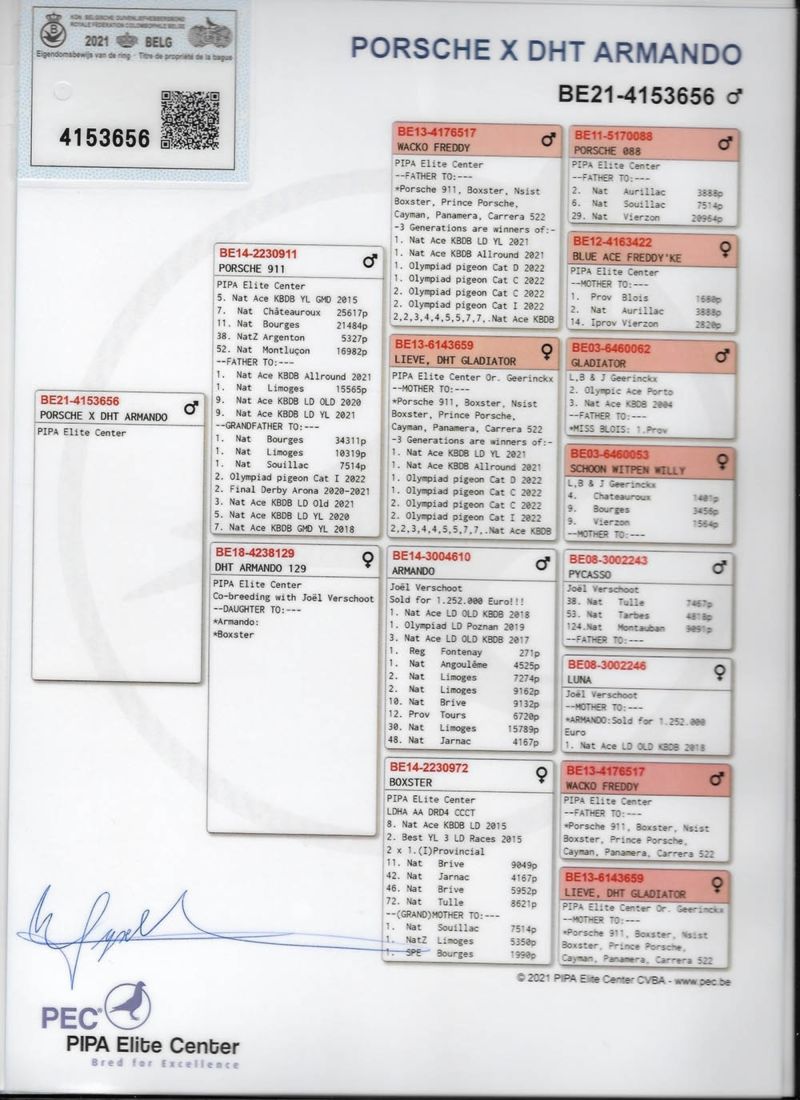 KON. BELGISCHE DUIVENLIEFHEBBERSBOND
ROYALE FÉDÉRATION COLOMBOPHILE BELGE
2021 BELG
Eigendomsbewijs van de ring - Titre de propriété de la bague
4153656
PORSCHE X DHT ARMANDO
BE21-4153656 ♂
BE21-4153656
PORSCHE X DHT ARMANDO ♂
PIPA Elite Center
BE14-2230911
PORSCHE 911 ♂
PIPA Elite Center
5. Nat Ace KBDB YL GMD 2015
7. Nat Châteauroux 25617p
11. Nat Bourges 21484p
38. NatZ Argenton 5327p
52. Nat Montluçon 16982p
--FATHER TO:---
1. Nat Ace KBDB Allround 2021
1. Nat Limoges 15565p
9. Nat Ace KBDB LD OLD 2020
9. Nat Ace KBDB LD YL 2021
--GRANDFATHER TO:---
1. Nat Bourges 34311p
1. Nat Limoges 10319p
1. Nat Souillac 7514p
2. Olympiad pigeon Cat I 2022
2. Final Derby Arona 2020-2021
3. Nat Ace KBDB LD Old 2021
5. Nat Ace KBDB LD YL 2020
7. Nat Ace KBDB GMD YL 2018
BE18-4238129
DHT ARMANDO 129 ♀
PIPA Elite Center
Co-breeding with Joël Verschoot
--DAUGHTER TO:---
*Armando:
*Boxster
BE13-4176517
WACKO FREDDY ♂
PIPA Elite Center
--FATHER TO:---
*Porsche 911, Boxster, Nsist
Boxster, Prince Porsche,
Cayman, Panamera, Carrera 522
-3 Generations are winners of:-
1. Nat Ace KBDB LD YL 2021
1. Nat Ace KBDB Allround 2021
1. Olympiad pigeon Cat D 2022
1. Olympiad pigeon Cat C 2022
2. Olympiad pigeon Cat C 2022
2. Olympiad pigeon Cat I 2022
2,2,3,4,4,5,5,7,7,.Nat Ace KBDB
BE13-6143659
LIEVE, DHT GLADIATOR ♀
PIPA Elite Center Or. Geerinckx
--MOTHER TO:---
*Porsche 911, Boxster, Nsist
Boxster, Prince Porsche,
Cayman, Panamera, Carrera 522
-3 Generations are winners of:-
1. Nat Ace KBDB LD YL 2021
1. Nat Ace KBDB Allround 2021
1. Olympiad pigeon Cat D 2022
1. Olympiad pigeon Cat C 2022
2. Olympiad pigeon Cat C 2022
2. Olympiad pigeon Cat I 2022
2,2,3,4,4,5,5,7,7,.Nat Ace KBDB
BE14-3004610
ARMANDO ♂
Joël Verschoot
Sold for 1.252.000 Euro!!!
1. Nat Ace LD OLD KBDB 2018
1. Olympiad LD Poznan 2019
3. Nat Ace LD OLD KBDB 2017
1. Reg Fontenay 271p
1. Nat Angoulême 4525p
2. Nat Limoges 7274p
2. Nat Limoges 9162p
10. Nat Brive 9132p
12. Prov Tours 6720p
30. Nat Limoges 15789p
48. Nat Jarnac 4167p
BE14-2230972
BOXSTER ♀
PIPA ELite Center
LDHA AA DRD4 CCCT
8. Nat Ace KBDB LD 2015
2. Best YL 3 LD Races 2015
2 x 1.(I)Provincial
11. Nat Brive 9049p
42. Nat Jarnac 4167p
46. Nat Brive 5952p
72. Nat Tulle 8621p
--(GRAND)MOTHER TO:---
1. Nat Souillac 7514p
1. NatZ Limoges 5350p
1. SPE Bourges 1990p
BE11-5170088
PORSCHE 088 ♂
PIPA Elite Center
--FATHER TO:---
2. Nat Aurillac 3888p
6. Nat Souillac 7514p
29. Nat Vierzon 20964p
BE12-4163422
BLUE ACE FREDDY'KE ♀
PIPA Elite Center
--MOTHER TO:---
1. Prov Blois 1680p
2. Nat Aurillac 3888p
14. Iprov Vierzon 2820p
BE03-6460062
GLADIATOR ♂
L,B & J Geerinckx
2. Olympic Ace Porto
3. Nat Ace KBDB 2004
--FATHER TO:---
*MISS BLOIS: 1.Prov
BE03-6460053
SCHOON WITPEN WILLY ♀
L,B & J Geerinckx
4. Chateauroux 1401p
9. Bourges 3456p
9. Vierzon 1564p
--MOTHER TO:---
BE08-3002243
PYCASSO ♂
Joël Verschoot
38. Nat Tulle 7467p
53. Nat Tarbes 4818p
124.Nat Montauban 9091p
--FATHER TO:---
BE08-3002246
LUNA ♀
Joël Verschoot
--MOTHER TO:---
*ARMANDO:Sold for 1.252.000
Euro
1. Nat Ace LD OLD KBDB 2018
BE13-4176517
WACKO FREDDY ♂
PIPA Elite Center
--FATHER TO:---
*Porsche 911, Boxster, Nsist
Boxster, Prince Porsche,
Cayman, Panamera, Carrera 522
BE13-6143659
LIEVE, DHT GLADIATOR ♀
PIPA Elite Center Or. Geerinckx
--MOTHER TO:---
*Porsche 911, Boxster, Nsist
Boxster, Prince Porsche,
Cayman, Panamera, Carrera 522
© 2021 PIPA Elite Center CVBA - www.pec.be
PEC
PIPA Elite Center
Bred for Excellence